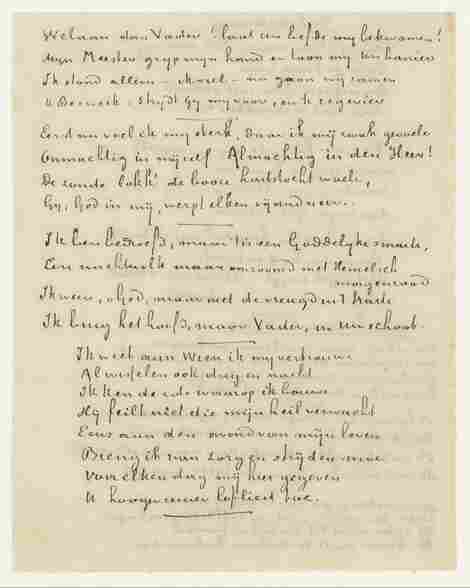 Welaan dan Vader! laat Uw liefde my bekwamen!
Myn Meester gryp myn hand en toon my Uw banier
Ik stond alleen - Maar - nu gaan wy samen
U Bezweik, strydt Gy my voor, en k zegevier
Eerst nu voel ik my sterk, daar ik mij zwak gevoele
Onmachtig in mijzelf Almachtig in den Heer!
De zonde lokk' de booze hartstocht woele,
Gy, God in my, werpt elken vijand neer.
Ik ben bedroefd, maar 't is een Goddelyke smart,
Een nachtwolk maar omzoomd met Hemelsch
morgenrood
Ik ween, o God, maar met de vreugd in't harte
Ik buig het hoofd, maar Vader, in Uw schoot.
Ik weet aan Wien ik my vertrouwe
Al wisselen ook dag en nacht
Ik ken de rots waarop ik bouwe
Hy feilt niet die mijn heil verwacht
Eens aan den avond van mijn leven
Breng ik van zorg en strijden moe
Voor elken dag mij hier gegeven
U hooger reiner loflied toe.